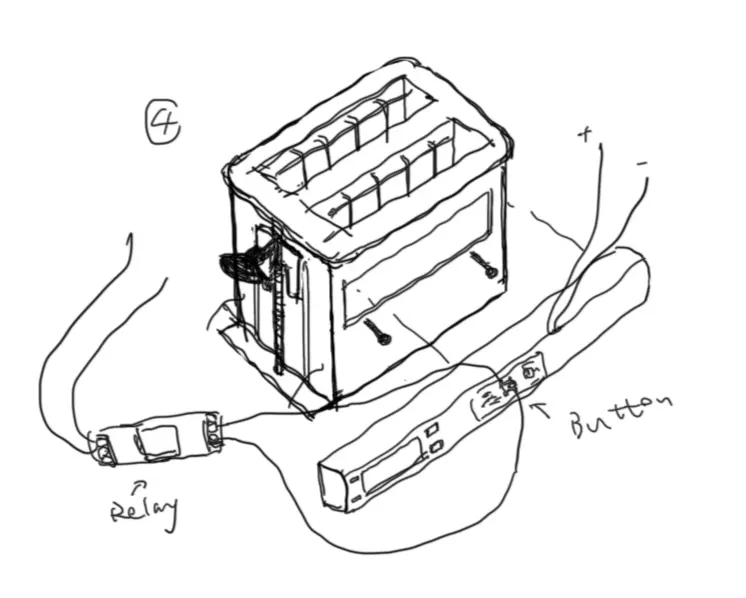 4
+
-
Button
Relay